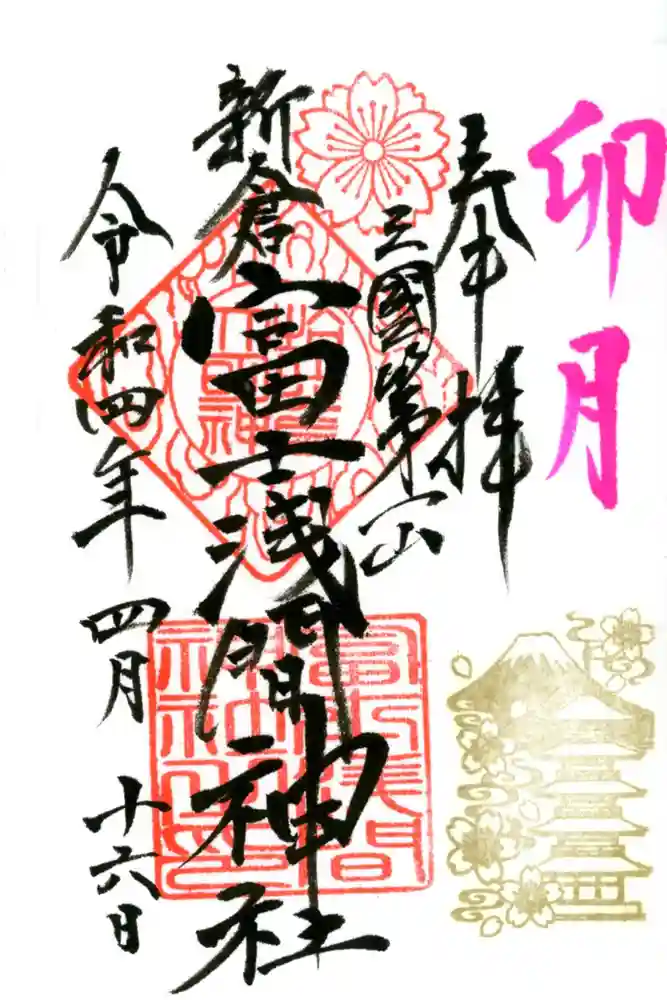 卯月
奉拝
三國第一山
新倉
富士浅間神社
令和四年
四月
十六日